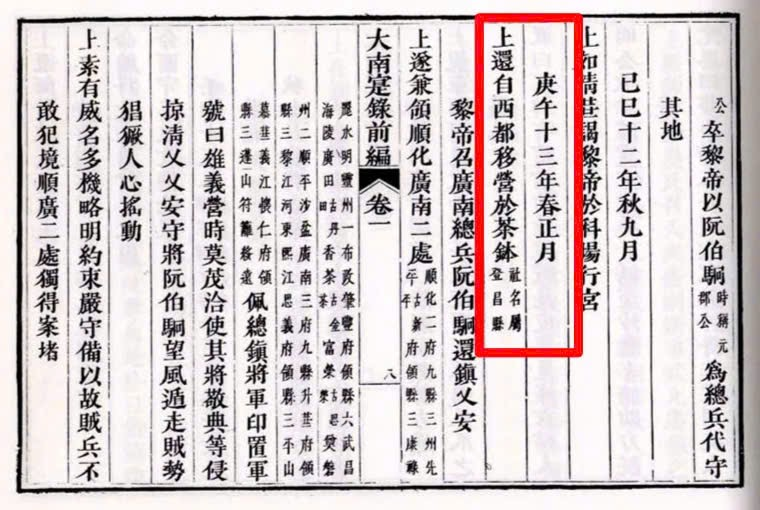 公卒黎帝以阮伯駉時稱元郡公為總兵代守
其地
己巳十二年秋九月
上如清謁黎帝於科場行宮
庚午十三年春正月
上還自西都移營於茶鉢社名屬登昌縣
黎帝召廣南總兵阮伯駉還鎮乂安
上遂兼領順化廣南二處順化二府九縣三州先平古新平府領縣三康祿
大南寔錄前編 卷一 八
麗水明靈州一布政肇豐府領縣六武昌海陵廣田古丹田香茶古金茶富榮古思榮奠磐
州二順平沙盆廣南三府九縣升華府領縣三黎江河東熙江思義府領縣三平山
慕華義江懷仁府領縣三蓬山符離綏遠佩總鎮將軍印置軍
號曰雄義營時莫茂洽使其將敬典等侵
掠清乂乂安守將阮伯駉望風遁走賊勢
猖獗人心搖動
上素有威名多機略明約束嚴守備以故賊兵不
敢犯境順廣二處獨得案堵